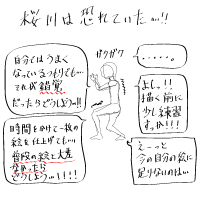 桜川は恐れていた…!!
自分ではうまく
なっているつもりでも…
それが錯覚
だったらどうしよう…!!
ガクガク
時間をかけて一枚
の絵を仕上げても…
普段の絵と大差
なかったら
どうしよう…!!!!
・・・・・・。
よし。!!
描く前に
少し練習
すっか!!!
えーっと
今の自分の絵に
足りないのは…